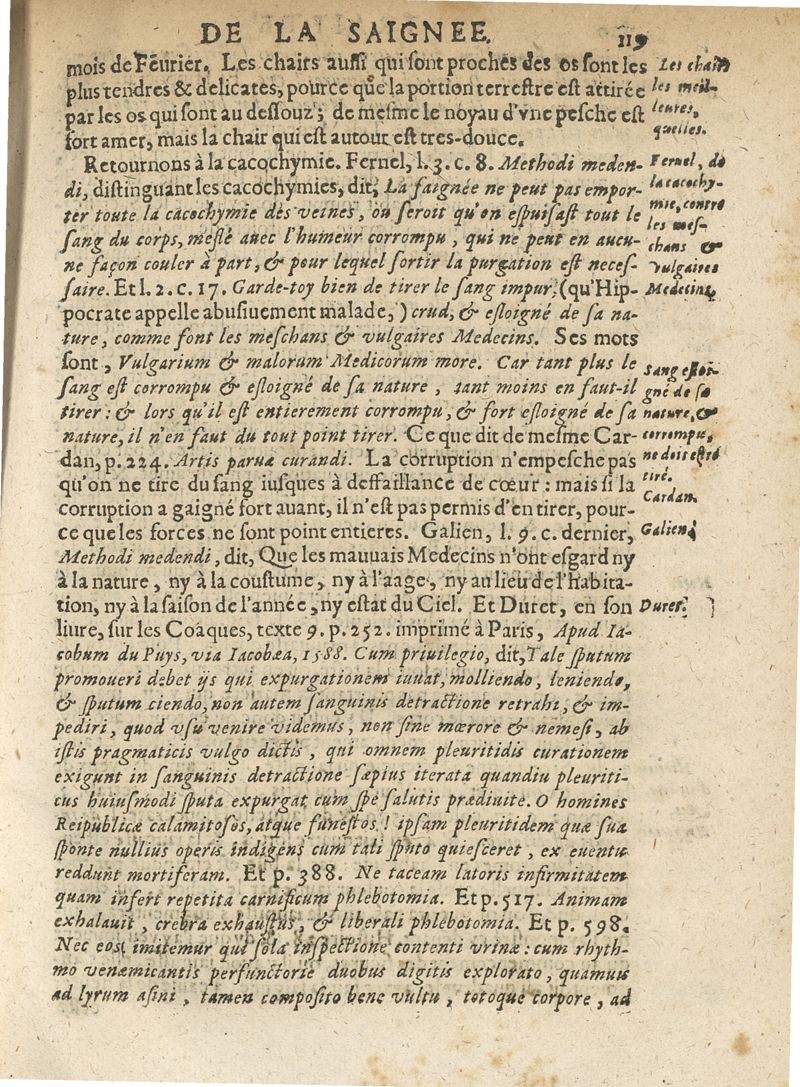 DE LA SAIGNEE. 119
mois de Feurier. Les chairs aussi qui sont proches des os sont les
plus tendres & delicates, pource que la portion terrestre est attirée
par les os qui sont au dessouz; de mesme le noyau d'vne pesche est
fort amer, mais la chair qui est autour est tres-douce.
Les chairs
les meil-
leures,
quelles.
Retournons à la cacochymie. Fernel, l. 3. c. 8. Methodi meden-
di, distinguant les cacochymies, dit, La saignée ne peut pas empor-
ter toute la cacochymie des veines, on seroit qu'on espuisast tout le
sang du corps, meslé auec l'humeur corrompu, qui ne peut en aucu-
ne façon couler à part, & pour lequel sortir la purgation est neces-
saire. Et l. 2. c. 17. Garde-toy bien de tirer le sang impur, (qu'Hip-
pocrate appelle abusiuement malade,) crud, & esloigné de sa na-
ture, comme font les meschans & vulgaires Medecins. Ses mots
sont, Vulgarium & malorum Medicorum more. Car tant plus le
sang est corrompu & esloigné de sa nature, tant moins en faut-il
tirer: & lors qu'il est entierement corrompu, & fort esloigné de sa
nature, il n'en faut du tout point tirer. Ce que dit de mesme Car-
dan, p. 224. Artis paruæ curandi. La corruption n'empesche pas
qu'on ne tire du sang iusques à deffaillance de cœur: mais si la
corruption a gaigné fort auant, il n'est pas permis d'en tirer, pour-
ce que les forces ne sont point entieres. Galien, l. 9. c. dernier,
Methodi medendi, dit, Que les mauuais Medecins n'ont esgard ny
à la nature, ny à la coustume, ny à l'aage, ny au lieu de l'habita-
tion, ny à la saison de l'année, ny estat du Ciel. Et Duret, en son
liure, sur les Coaques, texte 9. p. 252. imprimé à Paris, Apud Ia-
cobum du Puys, via Iacobæa, 1588. Cum priuilegio, dit, Tale sputum
promoueri debet ijs qui expurgationem iuuat, molliendo, leniendo,
& sputum ciendo, non autem sanguinis detractione retrahi, & im-
pediri, quod vsu venire videmus, non sine mœrore & nemesi, ab
istis pragmaticis vulgo dictis, qui omnem pleuritidis curationem
exigunt in sanguinis detractione sæpius iterata quandiu pleuriti-
cus huiusmodi sputa expurgat cum spe salutis prædiuite. O homines
Reipublicæ calamitosos, atque funestos! ipsam pleuritidem quæ sua
sponte nullius operis indigens cum tali sputo quiesceret, ex euentu
reddunt mortiferam. Et p. 388. Ne taceam latoris infirmitatem
quam infert repetita carnificum phlebotomia. Et p. 517. Animam
exhalauit, crebra exhaustus, & liberali phlebotomia. Et p. 598.
Nec eos imitemur qui sola inspectione contenti vrinæ: cum rhyth-
mo venæ micantis perfunctorie duobus digitis explorato, quamuis
ad lyrum asini, tamen composito bene vultu, totoque corpore, ad
Fernel, de
la cacochy-
mie, contre
les mes-
chans &
vulgaires
Medecins.
Sang esloi-
gné de sa
nature, &
corrompu,
ne doit estre
tiré.
Cardan.
Galien.
Duret.